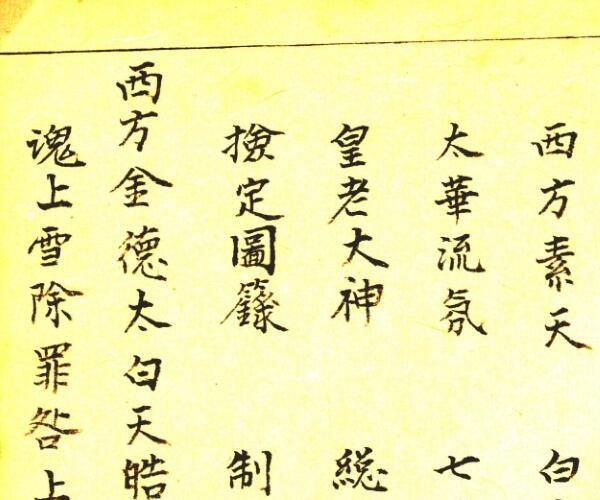 西方素天 白
太華流氛 七
皇老大神 総
撿定圖籙 制
西方金德太白天皓
魂上雪除罪咎上